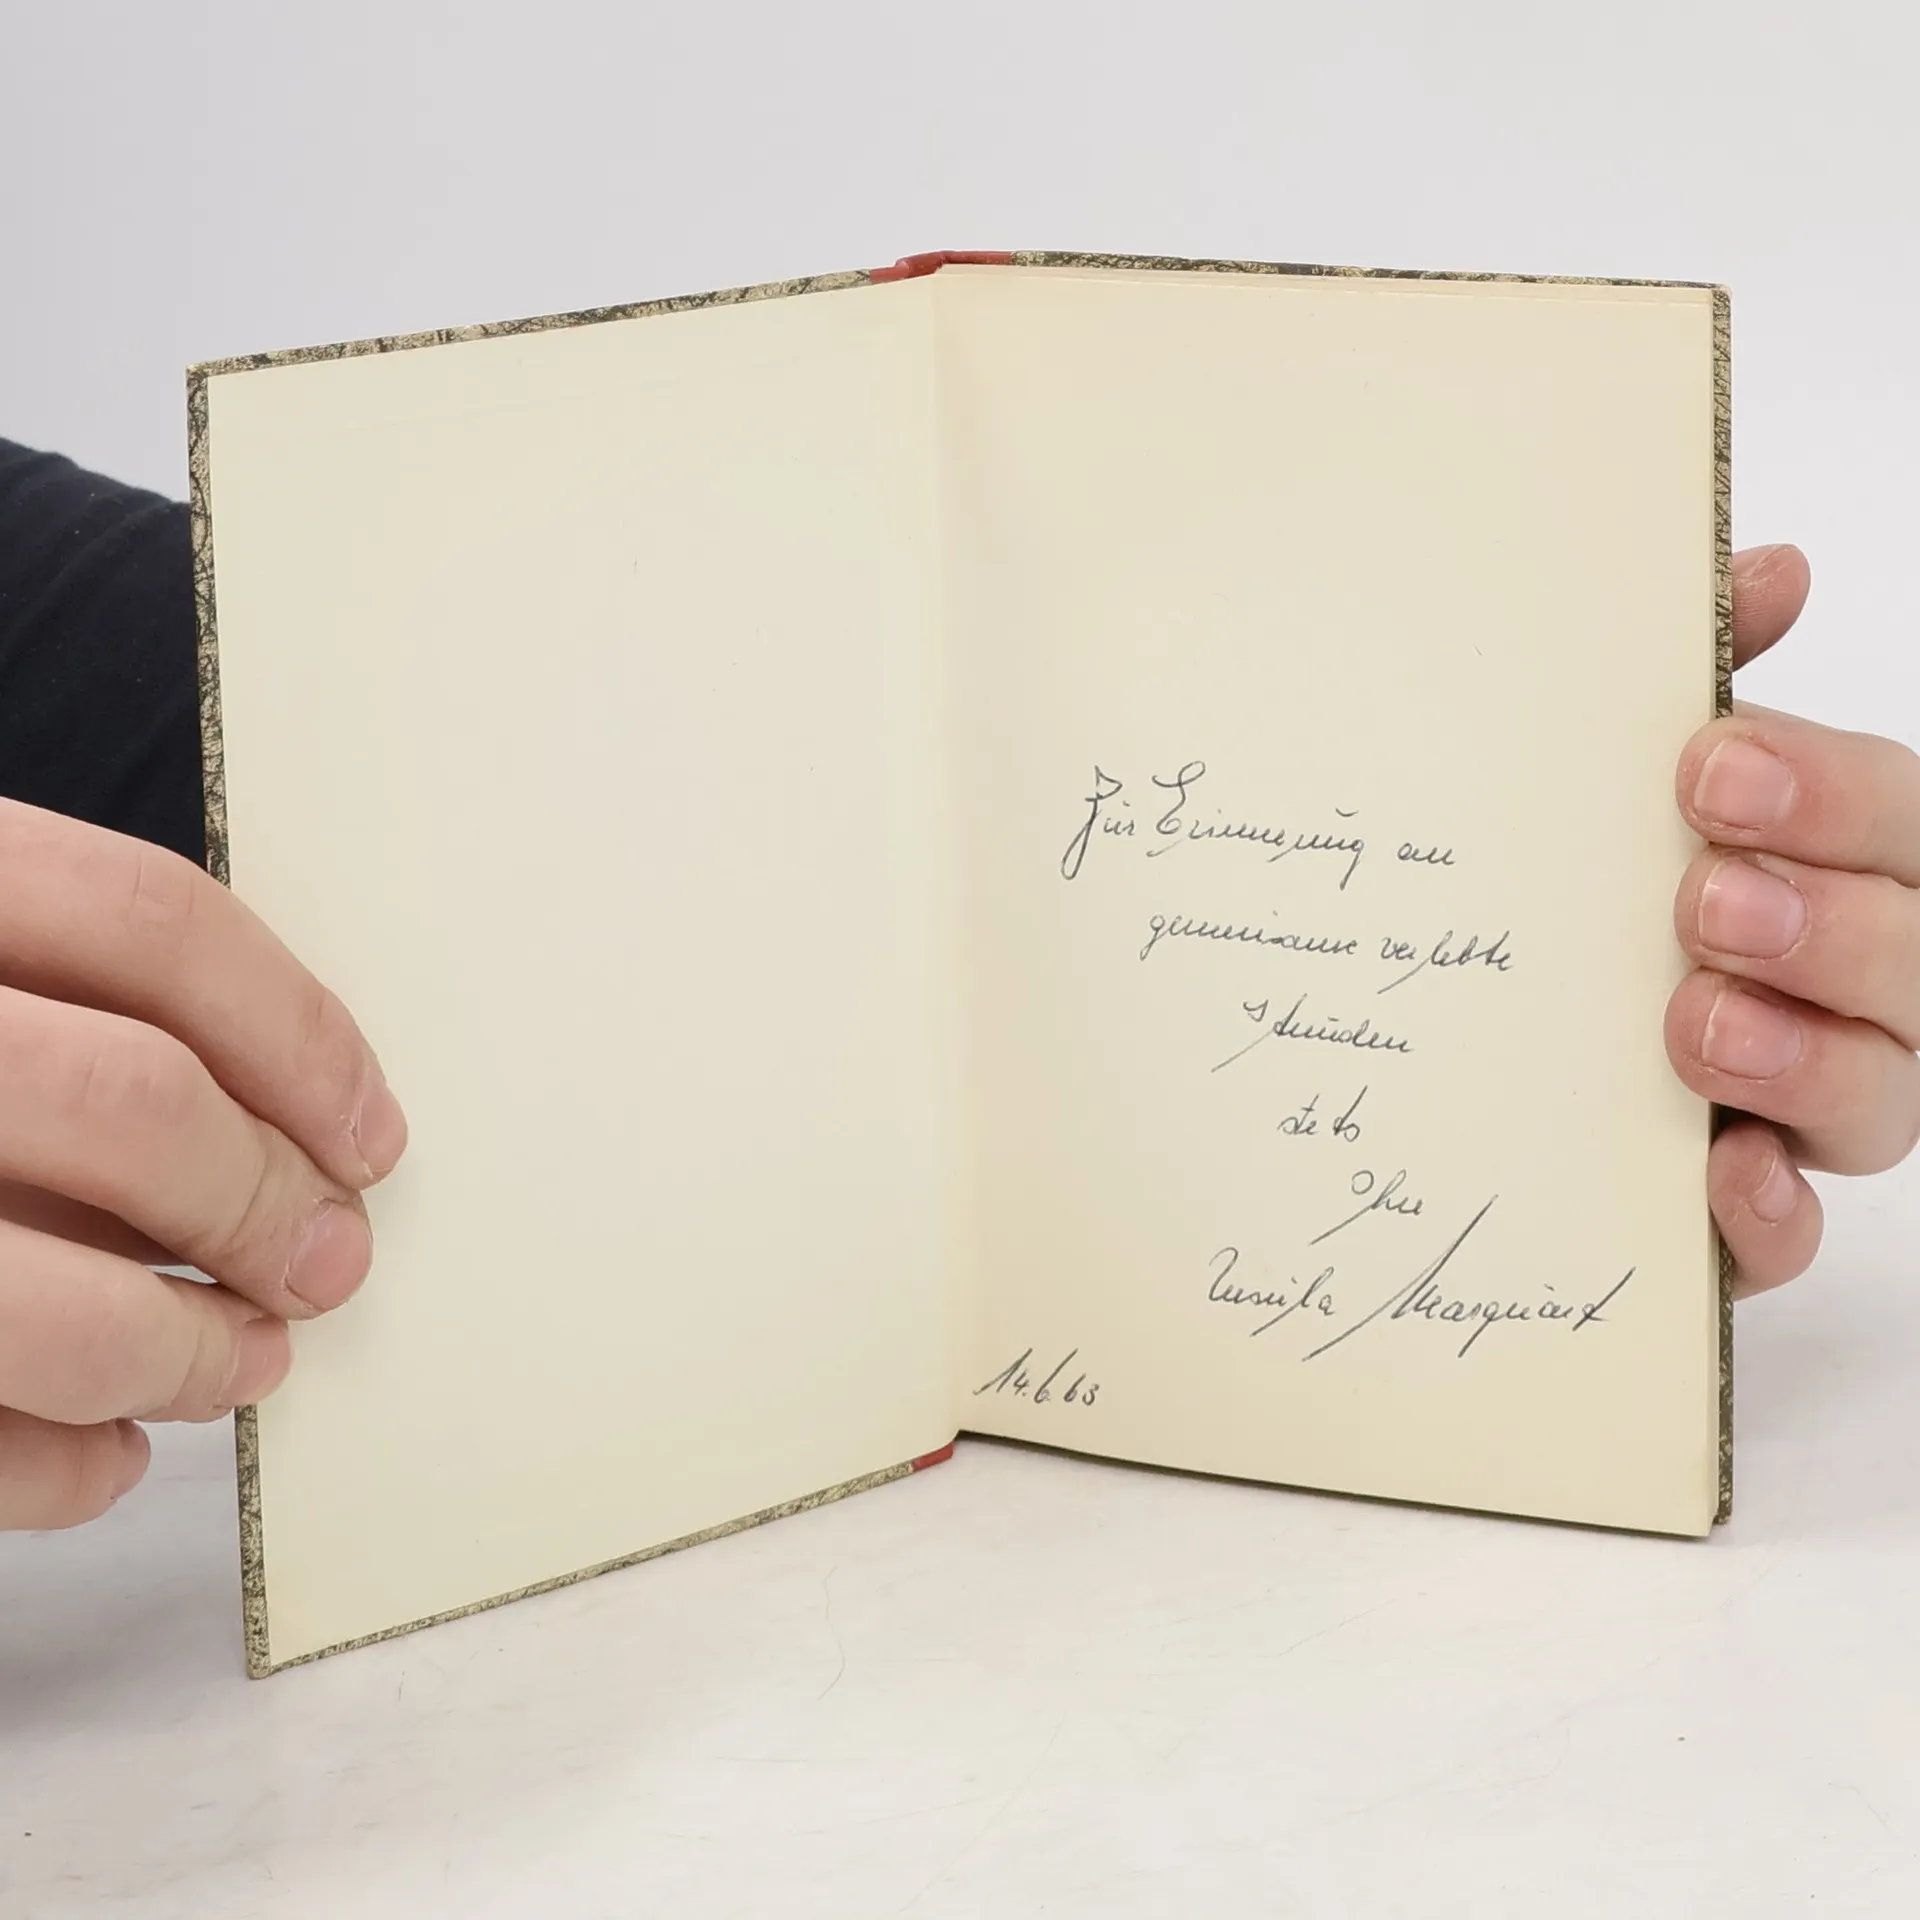 Zur Erinnerung an
gemeinsame verlebte
Stunden
stets
Ihre
Ursula Marquart
14.6.63